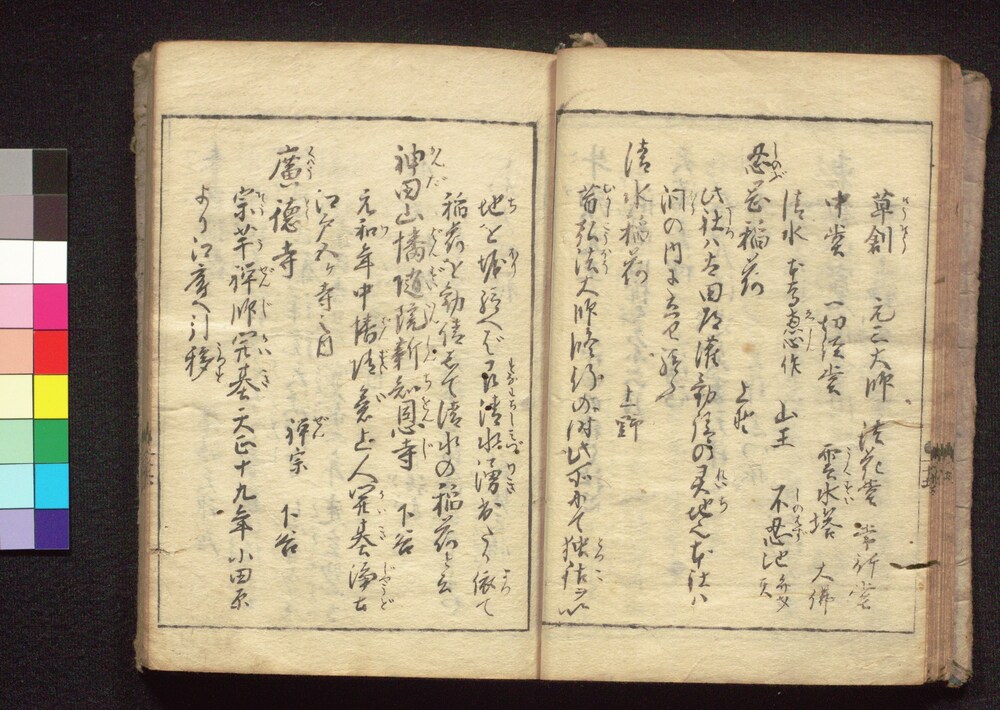 草創　元三大師　法花堂　常行堂
中堂　一切経堂　雲水塔　大佛
清水　本尊恵心作　山王　不忍池弁才天
忍岡稲荷　上野
此社ハ太田道灌勧請の灵地也本社ハ
洞の内に立せ給ふ
清水稲荷　上野
昔弘法大師修行の時此所かて独鈷を以
地を堀給へば忽清水湧出たり依て
稲荷を勧請して清水の稲荷と云
神田山幡随院新知恩寺　下谷
元和年中幡随意上人開基浄土
江戸五ヶ寺之内
廣徳寺　禅宗　下谷
宗芉禅師開基天正十九年小田原
より江府へ引移